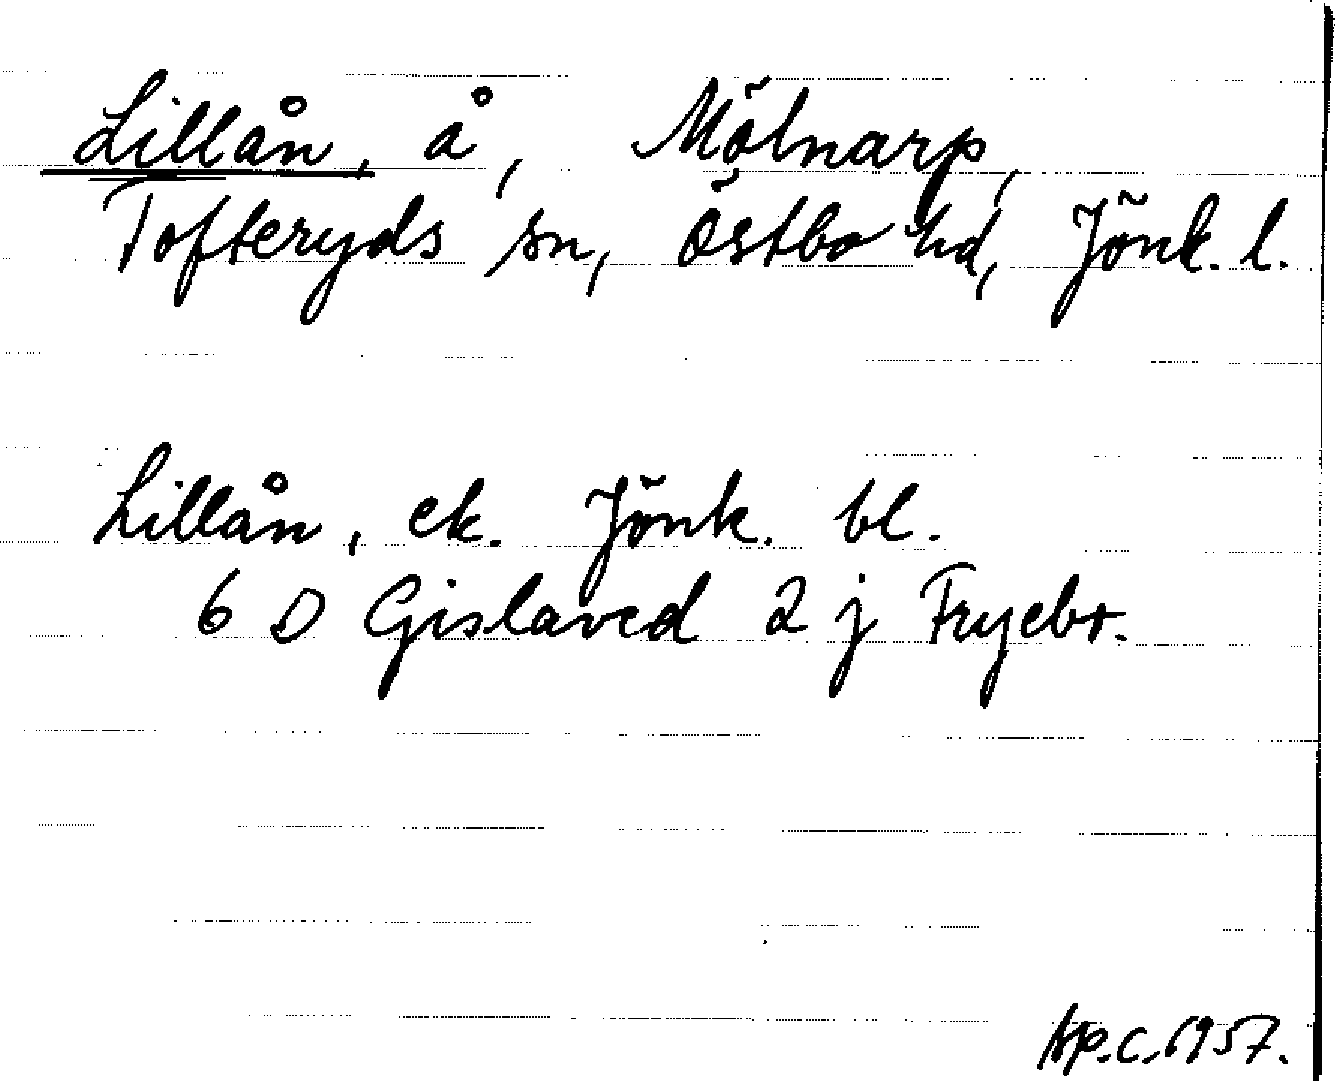 Lillån, å, Mölnarp,
Tofteryds sn, Östbo hd, Jönk. l.
Lillån, ek. Jönk. bl.
6 D Gislaved 2 j Fryebr.
c. 1957.